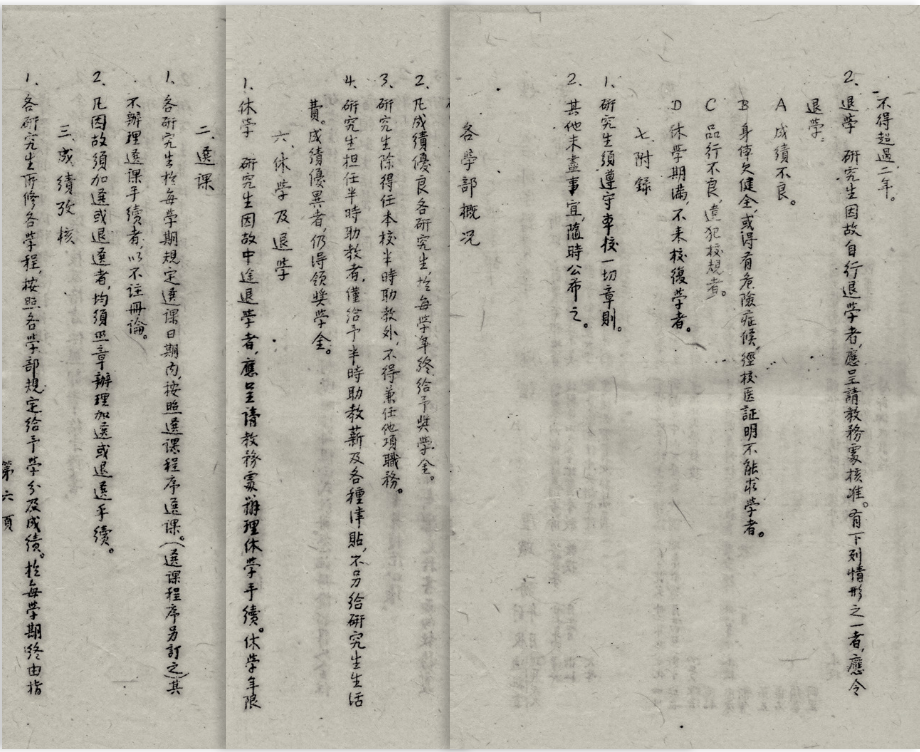 不得超過二年。
2. 退學 研究生因故自行退學者,應呈請教務處核准。有下列情形之一者,應令
退學。
A 成績不良。
B 身体欠健全,或得有危險症候,經校医証明不能求學者。
C 品行不良,違犯校規者。
D 休學期滿,不來校復學者。
七、附錄
1. 研究生須遵守本校一切章則。
2. 其他未盡事宜,隨時公布之。
各学部概况
2. 凡成績優良各研究生於每學年終給予奬學金。
3. 研究生除得任本校半時助教外,不得兼任他項職務。
4. 研究生担任半時助教者,僅給予半時助教薪及各種津貼,不另給研究生生活
費。成績優異者,仍得領奬學金。
六、休學及退學
1. 休學 研究生因故中途退學者,應呈請教務處,辦理休學手續。休学年限
二、選課
1. 各研究生於每學期規定選課日期內,按照選課程序選課。(選課程序另訂之)其
不辦理選課手續者,以不註冊論。
2. 凡因故須加選或退選者,均須照章辦理加選或退選手續。
三、成績攷核
1. 各研究生所修各學程,按照各學部規定給予學分及成績。於每學期終由指
第六頁